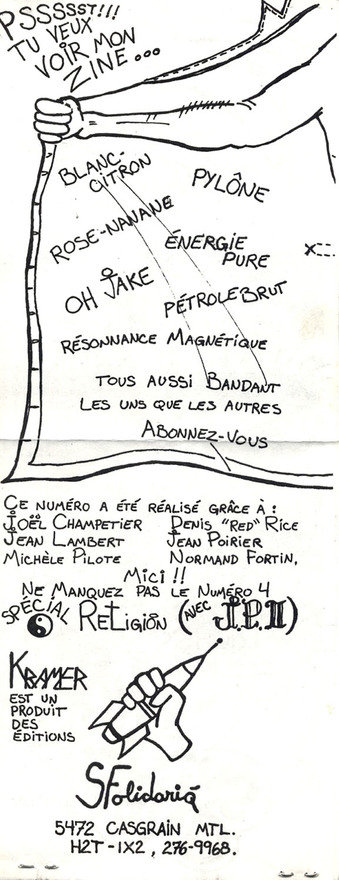 PSSSSST!!!
TU VEUX
VOIR MON
ZINE...
BLANC-
CITRON
PYLÔNE
ROSE-NANANE
ÉNERGIE
PURE
OH JAKE
PÉTROLE BRUT
RÉSONNANCE MAGNÉTIQUE
TOUS AUSSI BANDANT
LES UNS QUE LES AUTRES
ABONNEZ-VOUS
CE NUMÉRO A ÉTÉ RÉALISÉ GRÂCE À :
JOËL CHAMPETIER DENIS "RED" RICE
JEAN LAMBERT JEAN POIRIER
MICHÈLE PILOTE NORMAND FORTIN,
MICI !!
NE MANQUEZ PAS LE NUMÉRO 4
SPÉCIAL RELIGION (AVEC J.P.II)
KRAMER
EST UN
PRODUIT
DES
ÉDITIONS
SFolidarią
5472 CASGRAIN MTL.
H2T-1X2, 276-9968.